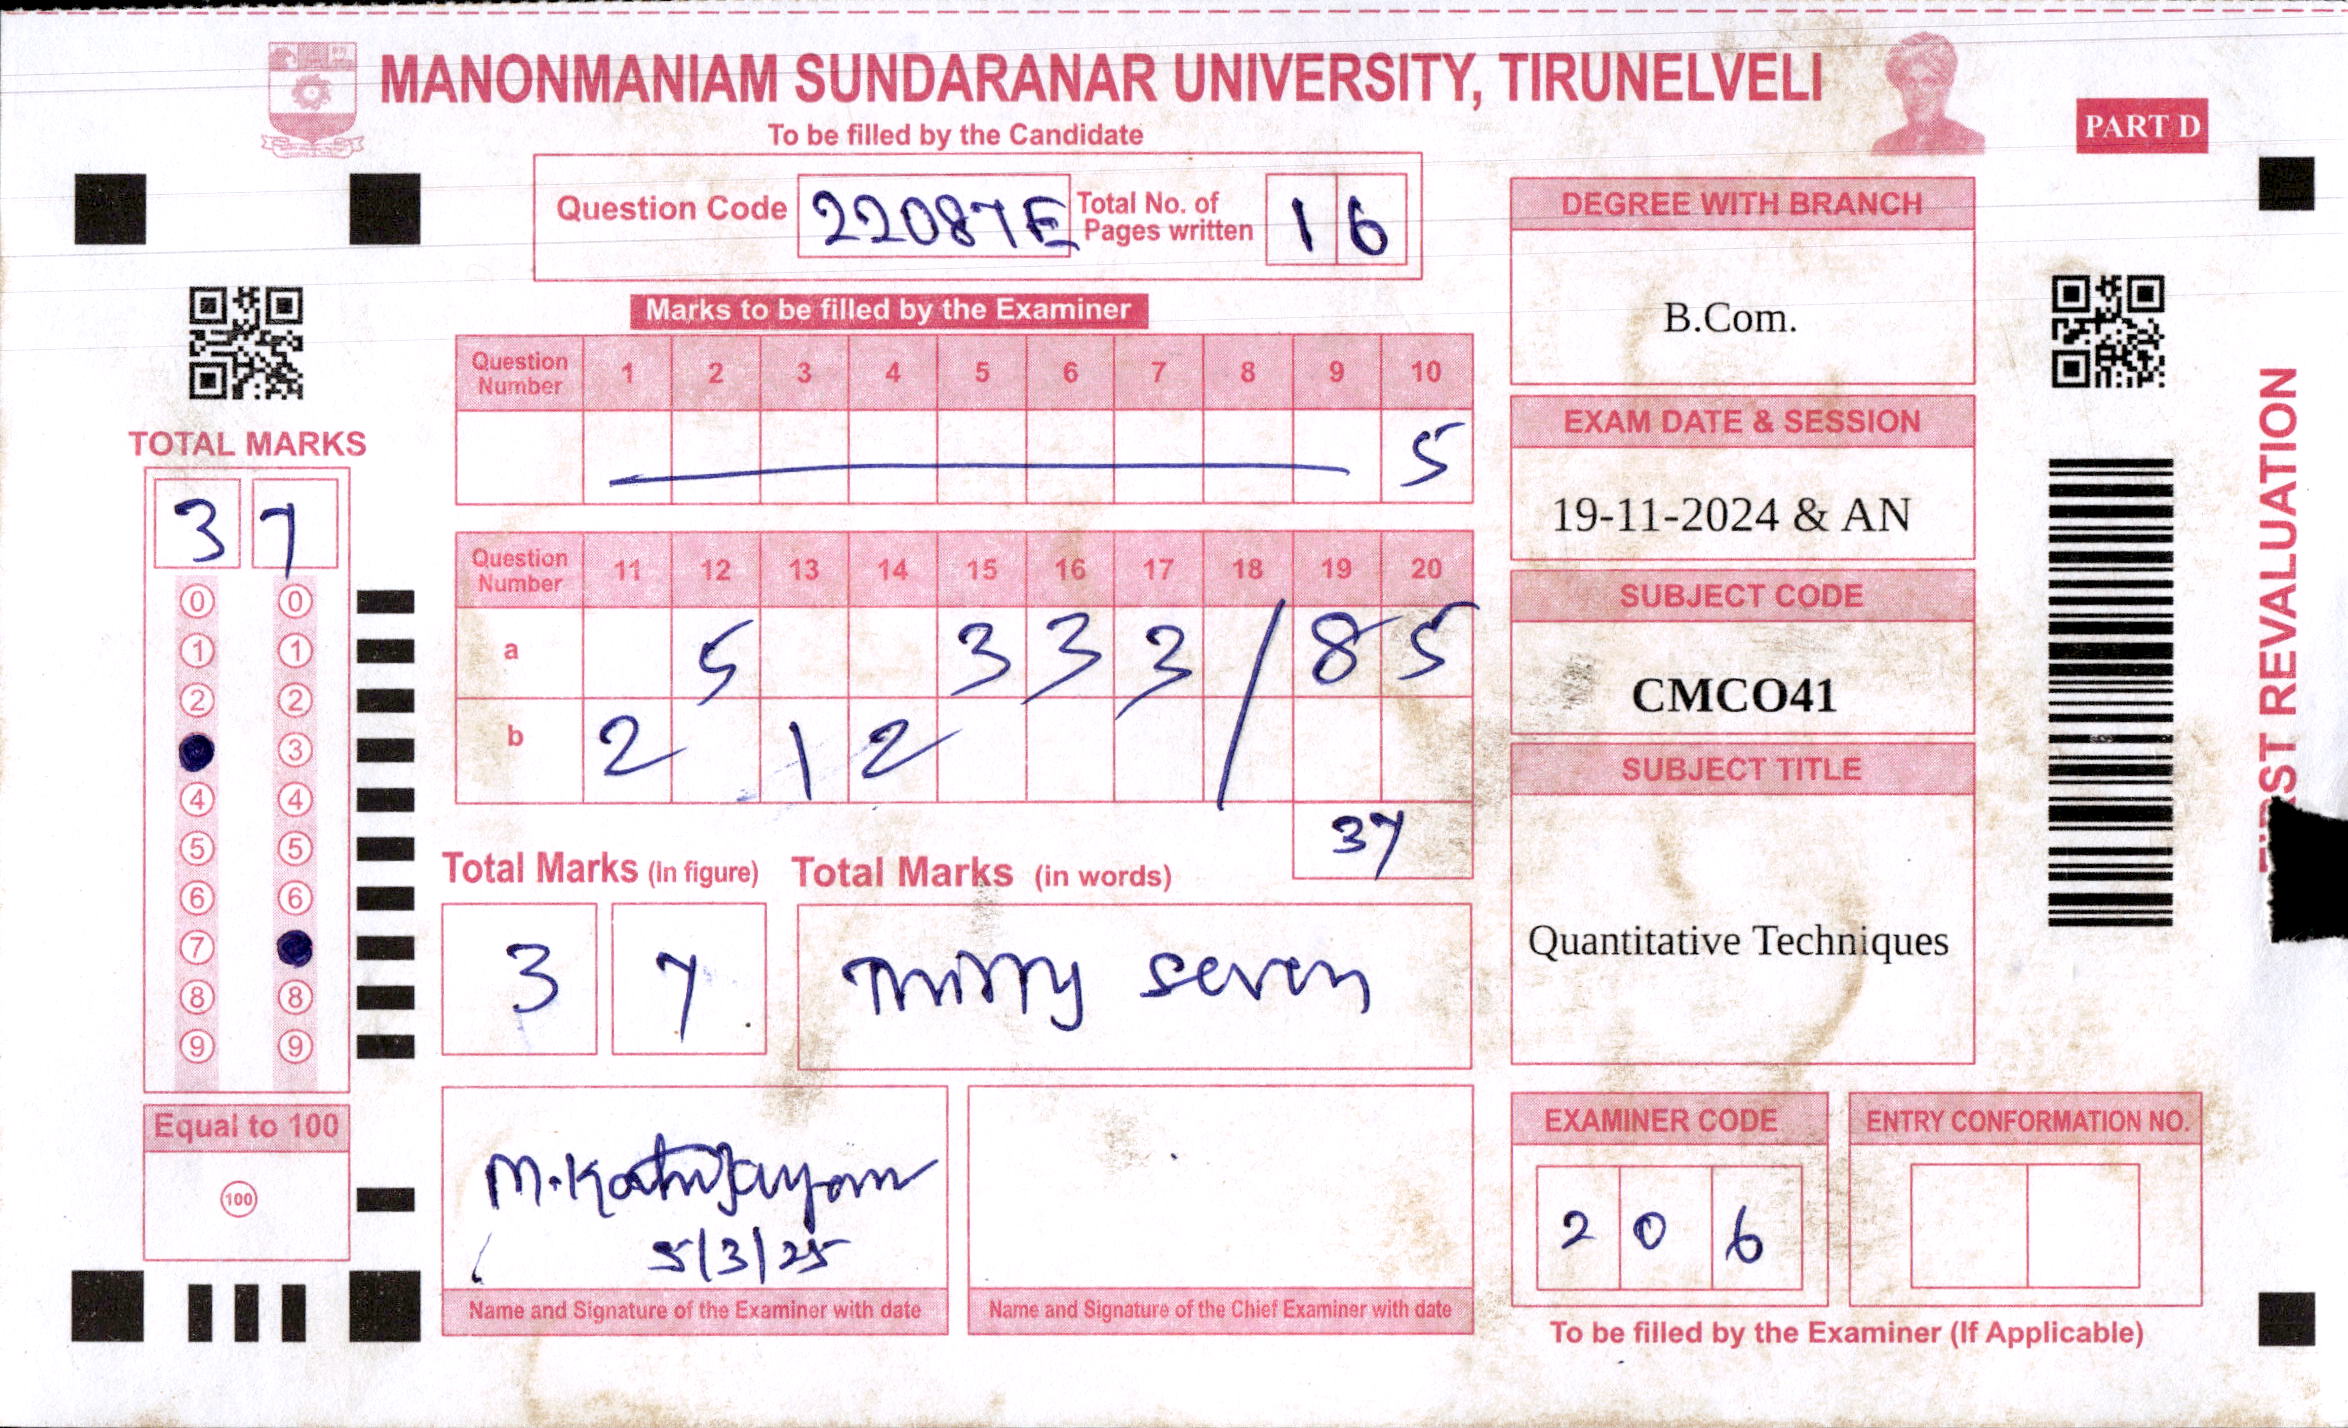 MANONMANIAM SUNDARANAR UNIVERSITY, TIRUNELVELI
PART D
To be filled by the Candidate
Question Code 22087E Total No. of Pages written 16
Marks to be filled by the Examiner
Question Number 1 2 3 4 5 6 7 8 9 10
5
Question Number 11 12 13 14 15 16 17 18 19 20
a 5 3 3 3 / 8 5
b 2 1 2
37
Total Marks (in figure) Total Marks (in words)
3 7 Thirty seven
5/3/25
Name and Signature of the Examiner with date
Name and Signature of the Chief Examiner with date
TOTAL MARKS
3 7
0 0
1 1
2 2
3
4 4
5 5
6 6
7
8 8
9 9
Equal to 100
100
DEGREE WITH BRANCH
B.Com.
EXAM DATE & SESSION
19-11-2024 & AN
SUBJECT CODE
CMCO41
SUBJECT TITLE
Quantitative Techniques
EXAMINER CODE
2 0 6
ENTRY CONFORMATION NO.
To be filled by the Examiner (If Applicable)
REVALUATION